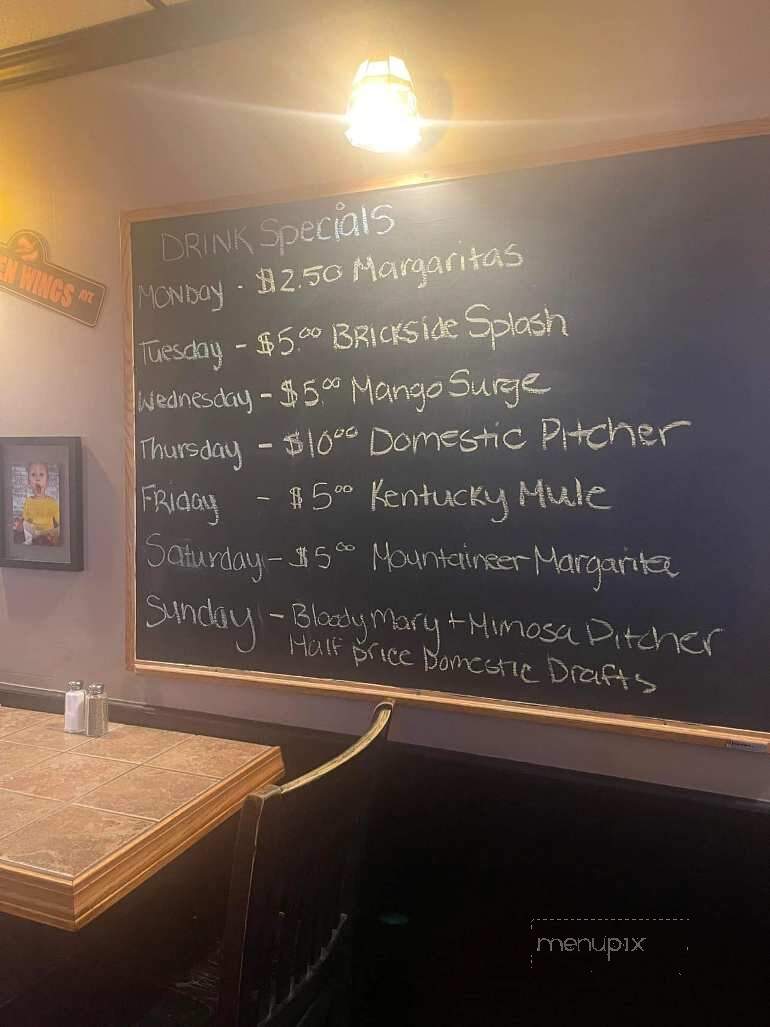 DRINK Specials
MONDAY - $2.50 Margaritas
Tuesday - $5.00 Brickside Splash
Wednesday - $5.00 Mango Surge
Thursday - $10.00 Domestic Pitcher
Friday - $5.00 Kentucky Mule
Saturday - $5.00 Mountaineer Margarita
Sunday - Bloody Mary + Mimosa Pitcher
Half price Domestic Drafts
EN WINGS AVE
menupix